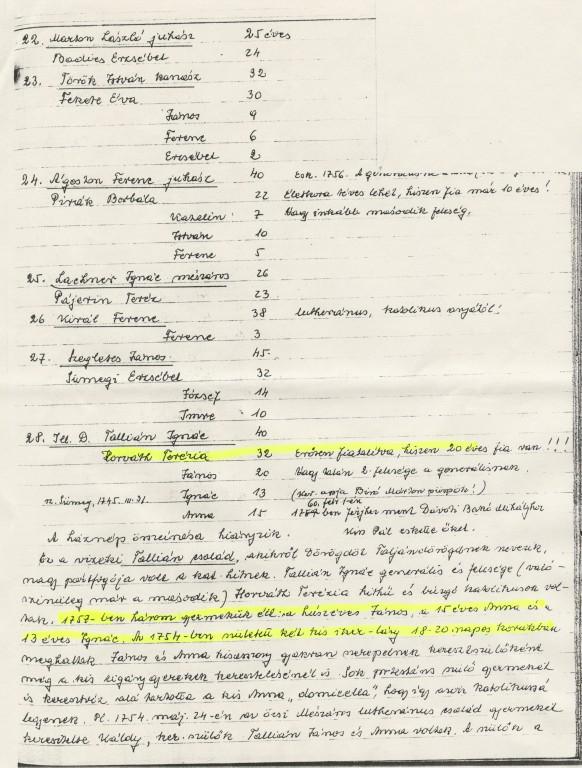 22. Marton László juhász 25 éves
Badics Erzsébet 24
23. Török István kanász 32
Fekete Éva 30
János 9
Ferenc 6
Erzsébet 2
24. Ágoston Ferenc juhász 40 Esk. 1756. A
Pirrák Borbála 22 Életkora téves lehet, hiszen fia már 10 éves!
Katalin 7 Vagy inkább második feleség.
István 10
Ferenc 5
25. Lachner Ignác mészáros 26
Pájerin Teréz 23
26 Királ Ferenc 38 lutheránus, katolikus anyától!
Ferenc 3
27. Szegletes János 45
Sümegi Erzsébet 32
József 14
Imre 10
28. Tek. D. Tallián Ignác 40
Horváth Terézia 32 Erősen fiatalítva, hiszen 20 éves fia van!!!
János 20 Vagy talán 2. felesége a generálisnak.
n. Sümeg, 1745. III. 31. Ignác 13 (Ker. apja Bíró Márton püspök!)
60. febr. 1-én
Anna 15 1757-ben férjhez ment Dávoti Bakó Mihályhoz
A háznép összeírása hiányzik. Kiss Pál eskette őket.
Ez a vizeki Tallián család, akikről Dörögdöt Taljándörögdnek nevezik,
nagy pártfogója volt a kat. hitnek. Tallián Ignác generális és felesége (való-
színűleg már a második) Horváth Terézia hithű és buzgó katolikusok vol-
tak. 1757-ben három gyermekük élt: a húszéves János, a 15 éves Anna és a
13 éves Ignác. Az 1754-ben született két kis iker-lány 18-20 napos korukban
meghaltak. János és Anna kisasszony gyakran szerepelnek keresztszülőként
még a kis cigánygyerekek keresztelésénél is. Sok protestáns szülő gyermekét
is keresztvíz alá tartotta a kis Anna „domicella”, hogy így azok katolikussá
legyenek. Pl. 1754. máj. 24-én az öcsi Mészáros lutheránus család gyermekét
keresztelte Káldy, ker. szülők Tallián János és Anna voltak. A szülők a